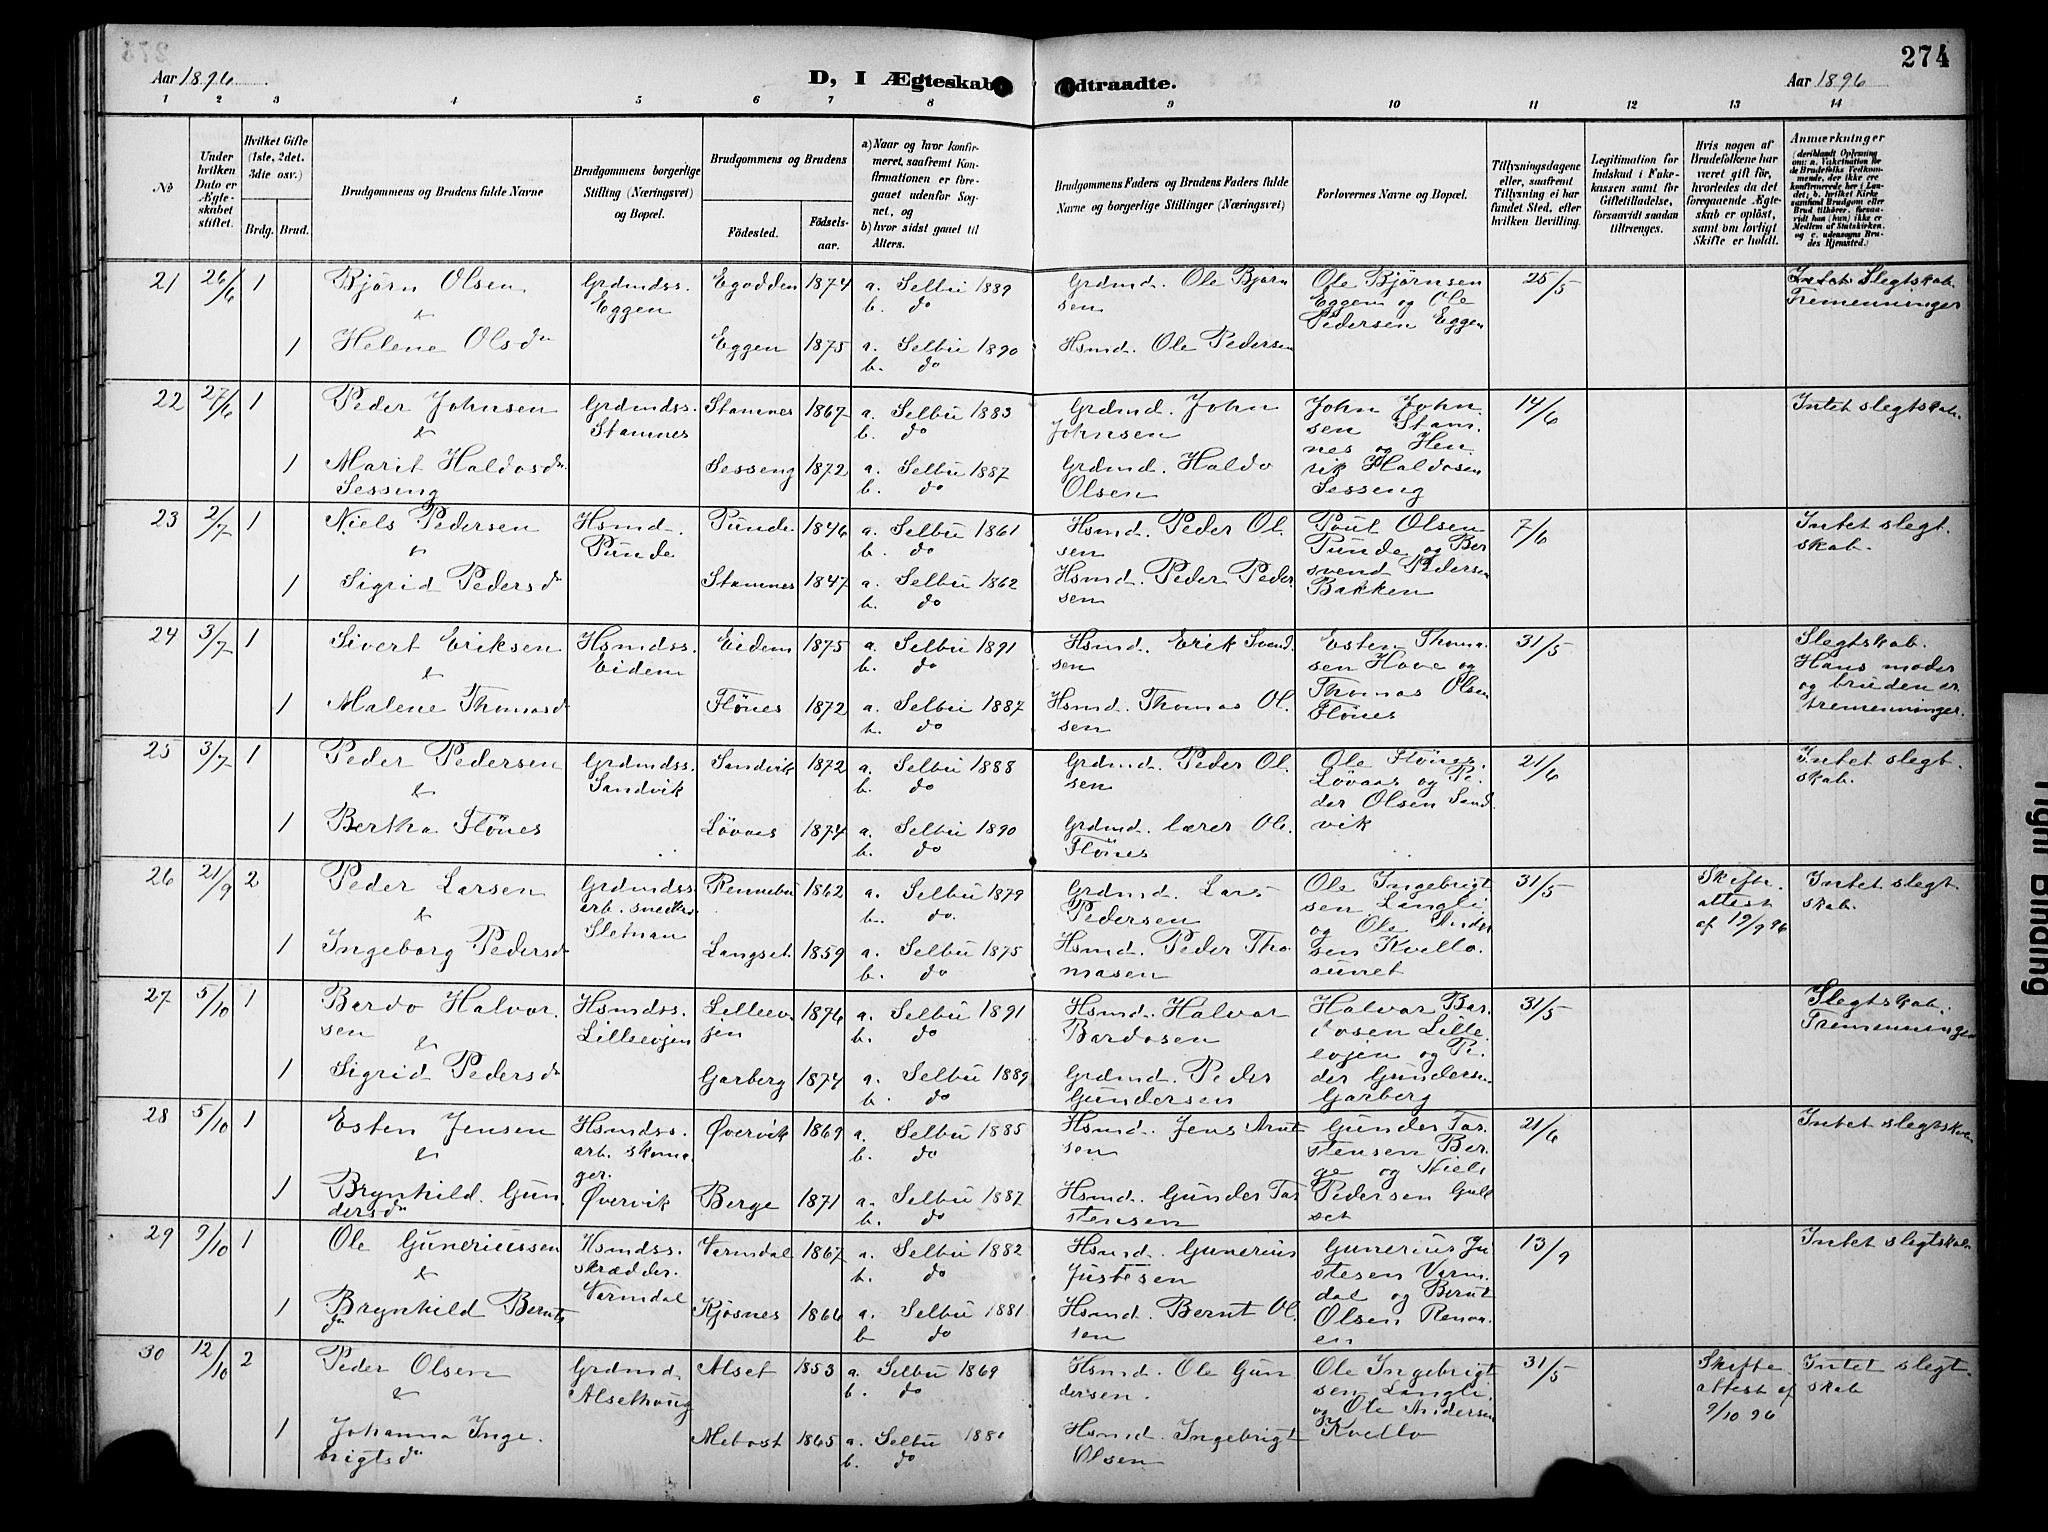 274
Aar 1896.
D, I Ægteskab
dtraadte.
Aar 1896
1 2 3 4 5 6 7 8 9 10 11 12 13 14
No
Under hvilken Dato er Ægteskabet stiftet.
Hvilket Gifte (1ste, 2det. 3die osv.)
Brdg. Brud.
Brudgommens og Brudens fulde Navne
Brudgommens borgerlige Stilling (Næringsvei) og Bopæl.
Brudgommens og Brudens
Födested.
Födselsaar.
a) Naar og hvor konfirmeret, saafremt Konfirmationen er foregaaet udenfor Sognet, og
b) hvor sidst gaaet til Alters.
Brudgommens Faders og Brudens Faders fulde Navne og borgerlige Stillinger (Næringsvei)
Forlovernes Navne og Bopæl.
Tillysningsdagene eller, saafremt Tillysning ei har fundet Sted, efter hvilken Bevilling.
Legitimation for Indskud i Enkekassen samt for Giftetilladelse, forsaavidt saadan tiltrænges.
Hvis nogen af Brudefolkene har været gift før, hvorledes da det foregaaende Ægteskab er oplöst, samt om lovligt Skifte er holdt.
Anmærkninger
21 26/6 1 Bjørn Olsen & Grdmdss. Eggen Egodden 1874 a. Selbu 1889 b. do Grdmd. Ole Bjørnsen Ole Bjørnsen Eggen og Ole Pedersen Eggen 25/5 Slegtskab. Tremenninger
1 Helene Olsdr Eggen 1875 a. Selbu 1890 b. do Hsmd. Ole Pedersen
22 27/6 1 Peder Johnsen & Grdmdss. Stamnes Stamnes 1867 a. Selbu 1883 b. do Grdmd. John Johnsen John Johnsen Stamnes og Henrik Haldosen Sesseng 14/6 Intet slegtskab.
1 Marit Haldosdr Sesseng Sesseng 1872 a. Selbu 1887 b. do Grdmd. Haldo Olsen
23 2/7 1 Niels Pedersen & Hsmd. Punde Punde 1846 a. Selbu 1861 b. do Hsmd. Peder Olsen Poul Olsen Punde og Bersvend Pedersen Bakken 7/6 Intet slegtskab.
1 Sigrid Pedersdr Stamnes 1847 a. Selbu 1862 b. do Hsmd. Peder Pedersen
24 3/7 1 Sivert Eriksen & Hsmdss. Eidem Eidem 1875 a. Selbu 1891 b. do Hsmd. Erik Svendsen Esten Thomasen Hove og Thomas Olsen Flönes 31/5 Slegtskab. Hans moder og bruden er tremenninger.
1 Malene Thomasdr Flönes 1872 a. Selbu 1887 b. do Hsmd. Thomas Olsen
25 3/7 1 Peder Pedersen & Grdmdss. Sandvik Sandvik 1872 a. Selbu 1888 b. do Grdmd. Peder Olsen Ole Flönes Lövaas og Peder Olsen Sandvik 21/6 Intet slegtskab.
1 Bertha Flönes Lövaas 1874 a. Selbu 1890 b. do Grdmd. lærer Ole Flönes
26 21/9 2 Peder Larsen & Grdmdss. arb. snedker Sletnan Rennebu 1862 a. Selbu 1879 b. do. Grdmd. Lars Pedersen Ole Ingebrigtsen Langli og Ole Andersen Kvello 31/5 Skifteattest af 19/9 96 Intet slegtskab.
1 Ingeborg Pedersdr Langset 1859 a. Selbu 1875 b. do Hsmd. Peder Thomasen
27 5/10 1 Bardo Halvorsen & Hsmdss. Lilleevjen Lilleevjen 1876 a. Selbu 1891 b. do Hsmd. Halvar Bardosen Halvar Bardosen Lilleevjen og Peder Gundersen Garberg 31/5 Slegtskab. Tremenninger
1 Sigrid Pedersdr Garberg 1874 a. Selbu 1889 b. do Grdmd. Peder Gundersen
28 5/10 1 Esten Jensen & Hsmdss. arb. skomager. Øvervik Øvervik 1869 a. Selbu 1885 b. do Hsmd. Jens Arntsen Gunder Tarstensen Berge og Niels Pedersen Gulset 21/6 Intet slegtskab
1 Brynhild Gundersdr Berge 1871 a. Selbu 1887 b. do Hsmd. Gunder Tarstensen
29 9/10 1 Ole Guneriussen & Hsmdss. skrædder. Varmdal Varmdal 1867 a. Selbu 1882 b. do Hsmd. Gunerius Justesen Gunerius Justesen Varmdal og Bernt Olsen 13/9 Intet slegtskab
1 Brynhild Berntsdr Kjøsnes 1866 a. Selbu 1881 b do Hsmd. Bernt Olsen
30 12/10 2 Peder Olsen & Grdmd. Alsethaug Alset 1853 a. Selbu 1869 b. do Hsmd. Ole Gundersen. Ole Ingebrigtsen Langli og Ole Andersen Kvello 31/5 Skifteattest af 9/10 96 Intet slegtskab
1 Johanna Ingebrigtsdr Mebost 1865 a. Selbu 1881 b. do Hsmd. Ingebrigt Olsen
Tight Binding